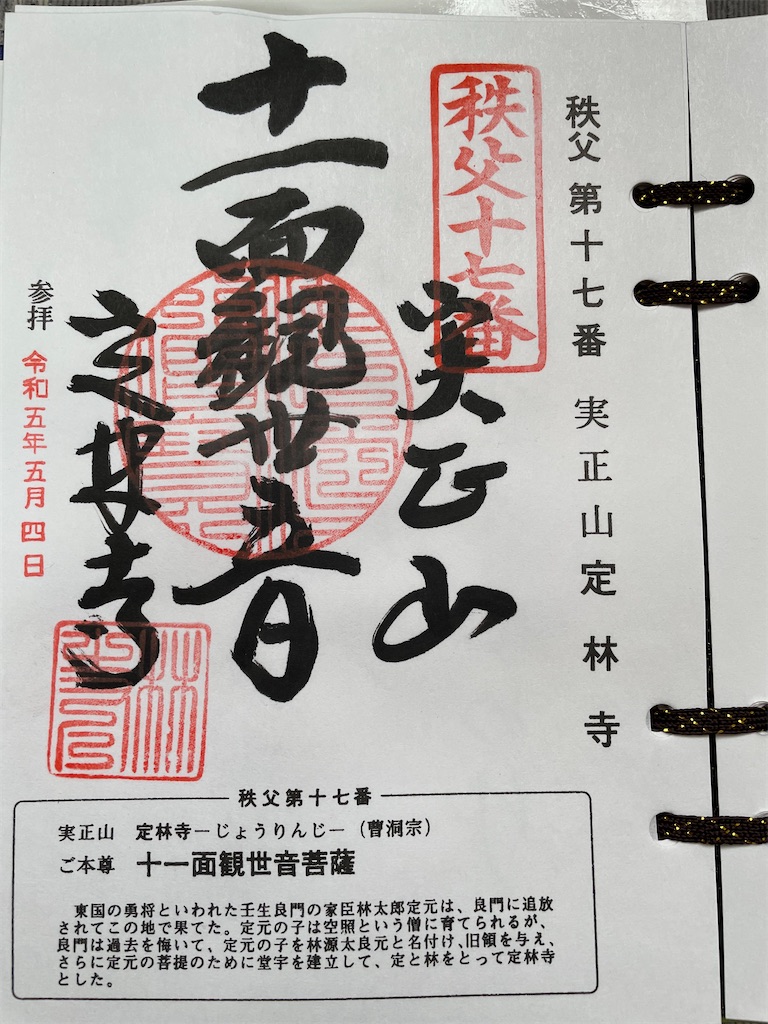 秩父 第十七番 実正山 定林寺
秩父十七番
実正山
十一面観世音
定林寺
参拝 令和五年五月四日
秩父第十七番
実正山 定林寺－じょうりんじ－（曹洞宗）
ご本尊 十一面観世音菩薩
東国の勇将といわれた壬生良門の家臣林太郎定元は、良門に追放
されてこの地で果てた。定元の子は空照という僧に育てられるが、
良門は過去を悔いて、定元の子を林源太良元と名付け、旧領を与え、
さらに定元の菩提のために堂宇を建立して、定と林をとって定林寺
とした。